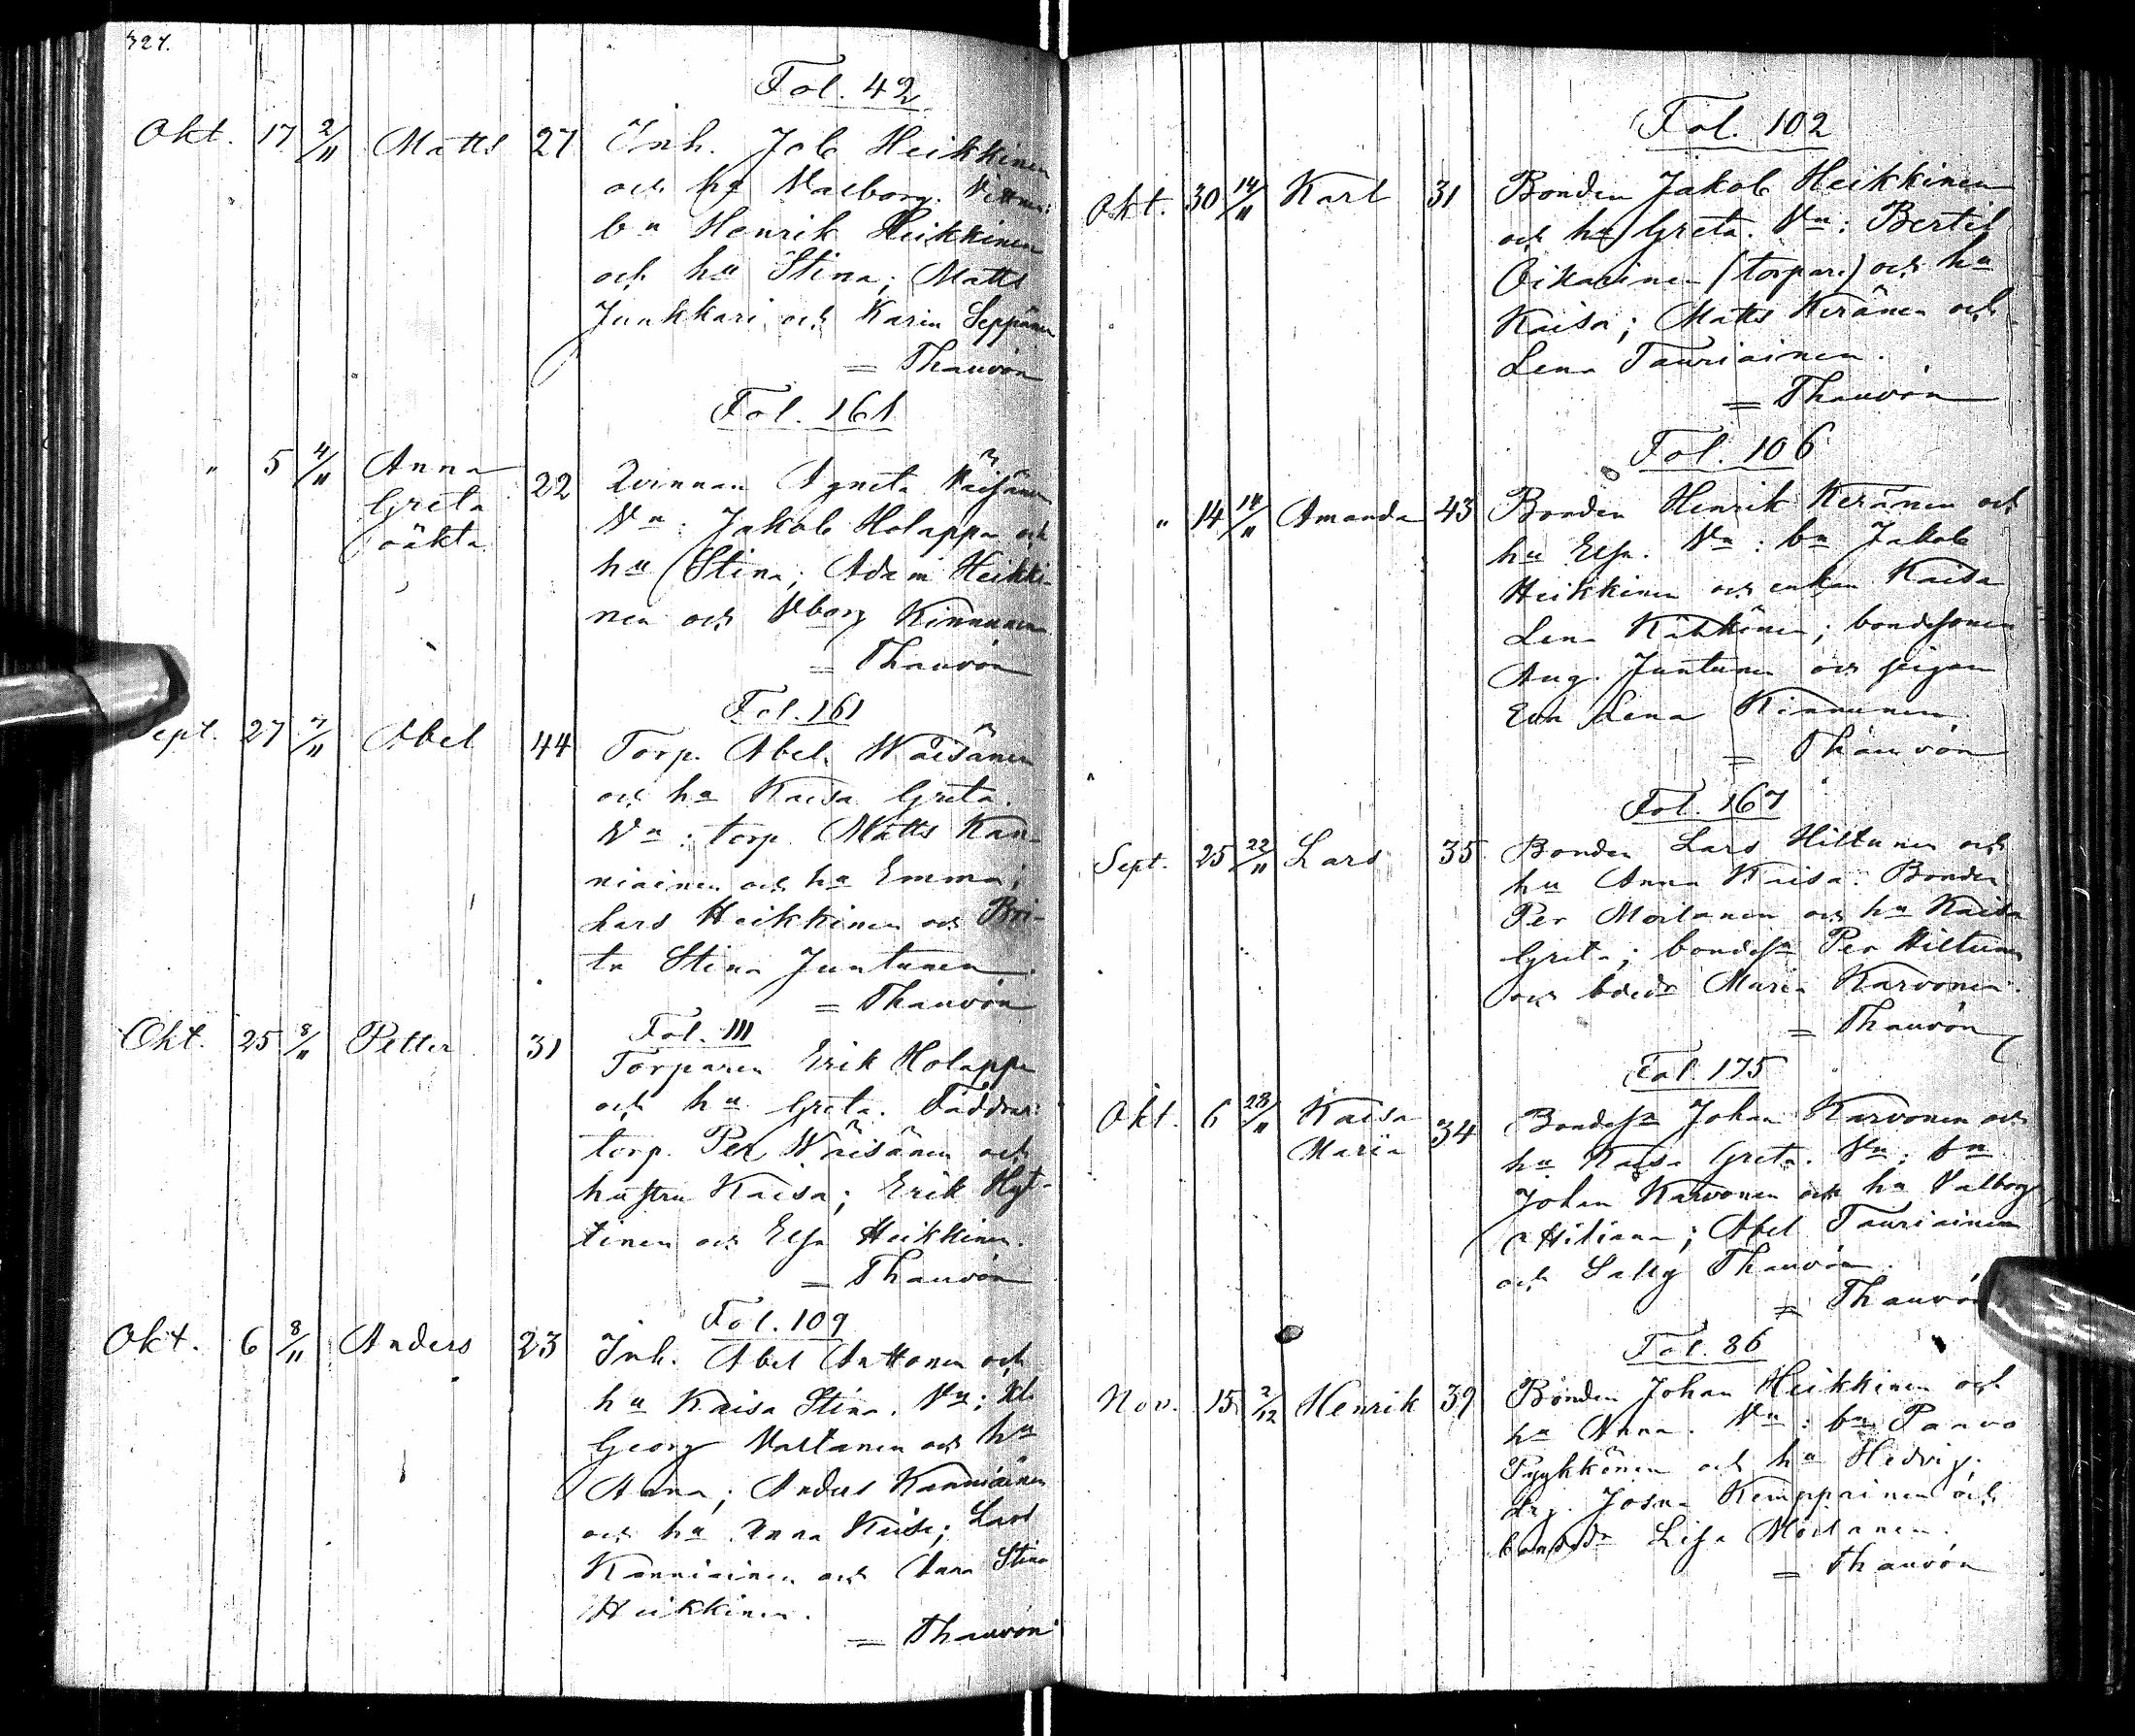 327.
Fol. 42
Okt. 17 2/11 Matts 27 Inh. Jak Heikkinen
och hu Valborg. Vittnen:
bn Henrik Heikkinen
och hu Stina; Matts
Junkkari och Karin Seppänen
= Thauvón
Fol. 161
" 5 4/11 Anna Greta oäkta 22 Qvinnan Agneta Väisänen
Vn: Jakob Holappa och
hu Stina; Adam Heikki-
nen och Vborg Kinnunen
= Thauvón
Fol. 161
Sept. 27 7/11 Abel 44 Torp. Abel Wäisänen
och hu Kaisa Greta.
Vn: torp. Matts Kan-
niainen och hu Emma;
Lars Heikkinen och Bri-
ta Stina Juntunen.
= Thauvón
Fol. 111
Okt. 25 8/11 Petter 31 Torparen Erik Holappa
och hu Greta. Faddrar:
torp. Per Wäisänen och
hustru Kaisa; Erik Hyt-
tinen och Elsa Heikkinen.
= Thauvón
Fol. 109
Okt. 6 8/11 Anders 23 Inh. Abel Anttonen och
hu Kaisa Stina. Vn:
Georg Valtanen och hu
Anna; Anders Kanniainen
och hu Anna Kaisa; Lars
Kanniainen och Anna Stina
Heikkinen.
= Thauvón
Fol. 102
Okt. 30 14/11 Karl 31 Bonden Jakob Heikkinen
och hu Greta. Vn: Bertil
Oikarinen (torpare) och hu
Kaisa; Matts Keränen och
Lena Tauriainen.
= Thauvón
Fol. 106
" 14 14/11 Amanda 43 Bonden Henrik Keränen och
hu Elsa. Vn: bn Jakob
Heikkinen och enkan Kaisa
Lena Kähkönen; bondesonen
Aug. Juntunen och pigan
Eva Lena Kinnunen.
= Thauvón
Fol. 167
Sept. 25 22/11 Lars 35 Bonden Lars Hiltunen och
hu Anna Kaisa. Bonden
Per Moilanen och hu Kaisa
Greta; bondesn Per Hiltunen
och bdedr Maria Karvonen.
= Thauvón
Fol. 175
Okt. 6 28/11 Kaisa Maria 34 Bondesn Johan Karvonen och
hu Kaisa Greta. Vn: bn
Johan Karvonen och hu Valborg
Abel Tauriainen
och Sally Thauvón.
= Thauvón
Fol. 86
Nov. 15 2/12 Henrik 39 Bonden Johan Heikkinen och
hu Anna. Vn: bn Paavo
Pyykkönen och hu Hedvig;
drg. Josua Kemppainen och
bondedr Lisa Moilanen.
= Thauvón